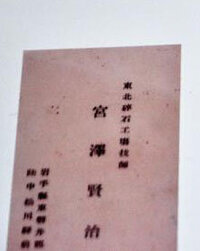 東北砕石工場技師
宮澤賢治
岩手縣東磐井郡
陸中松川驛前